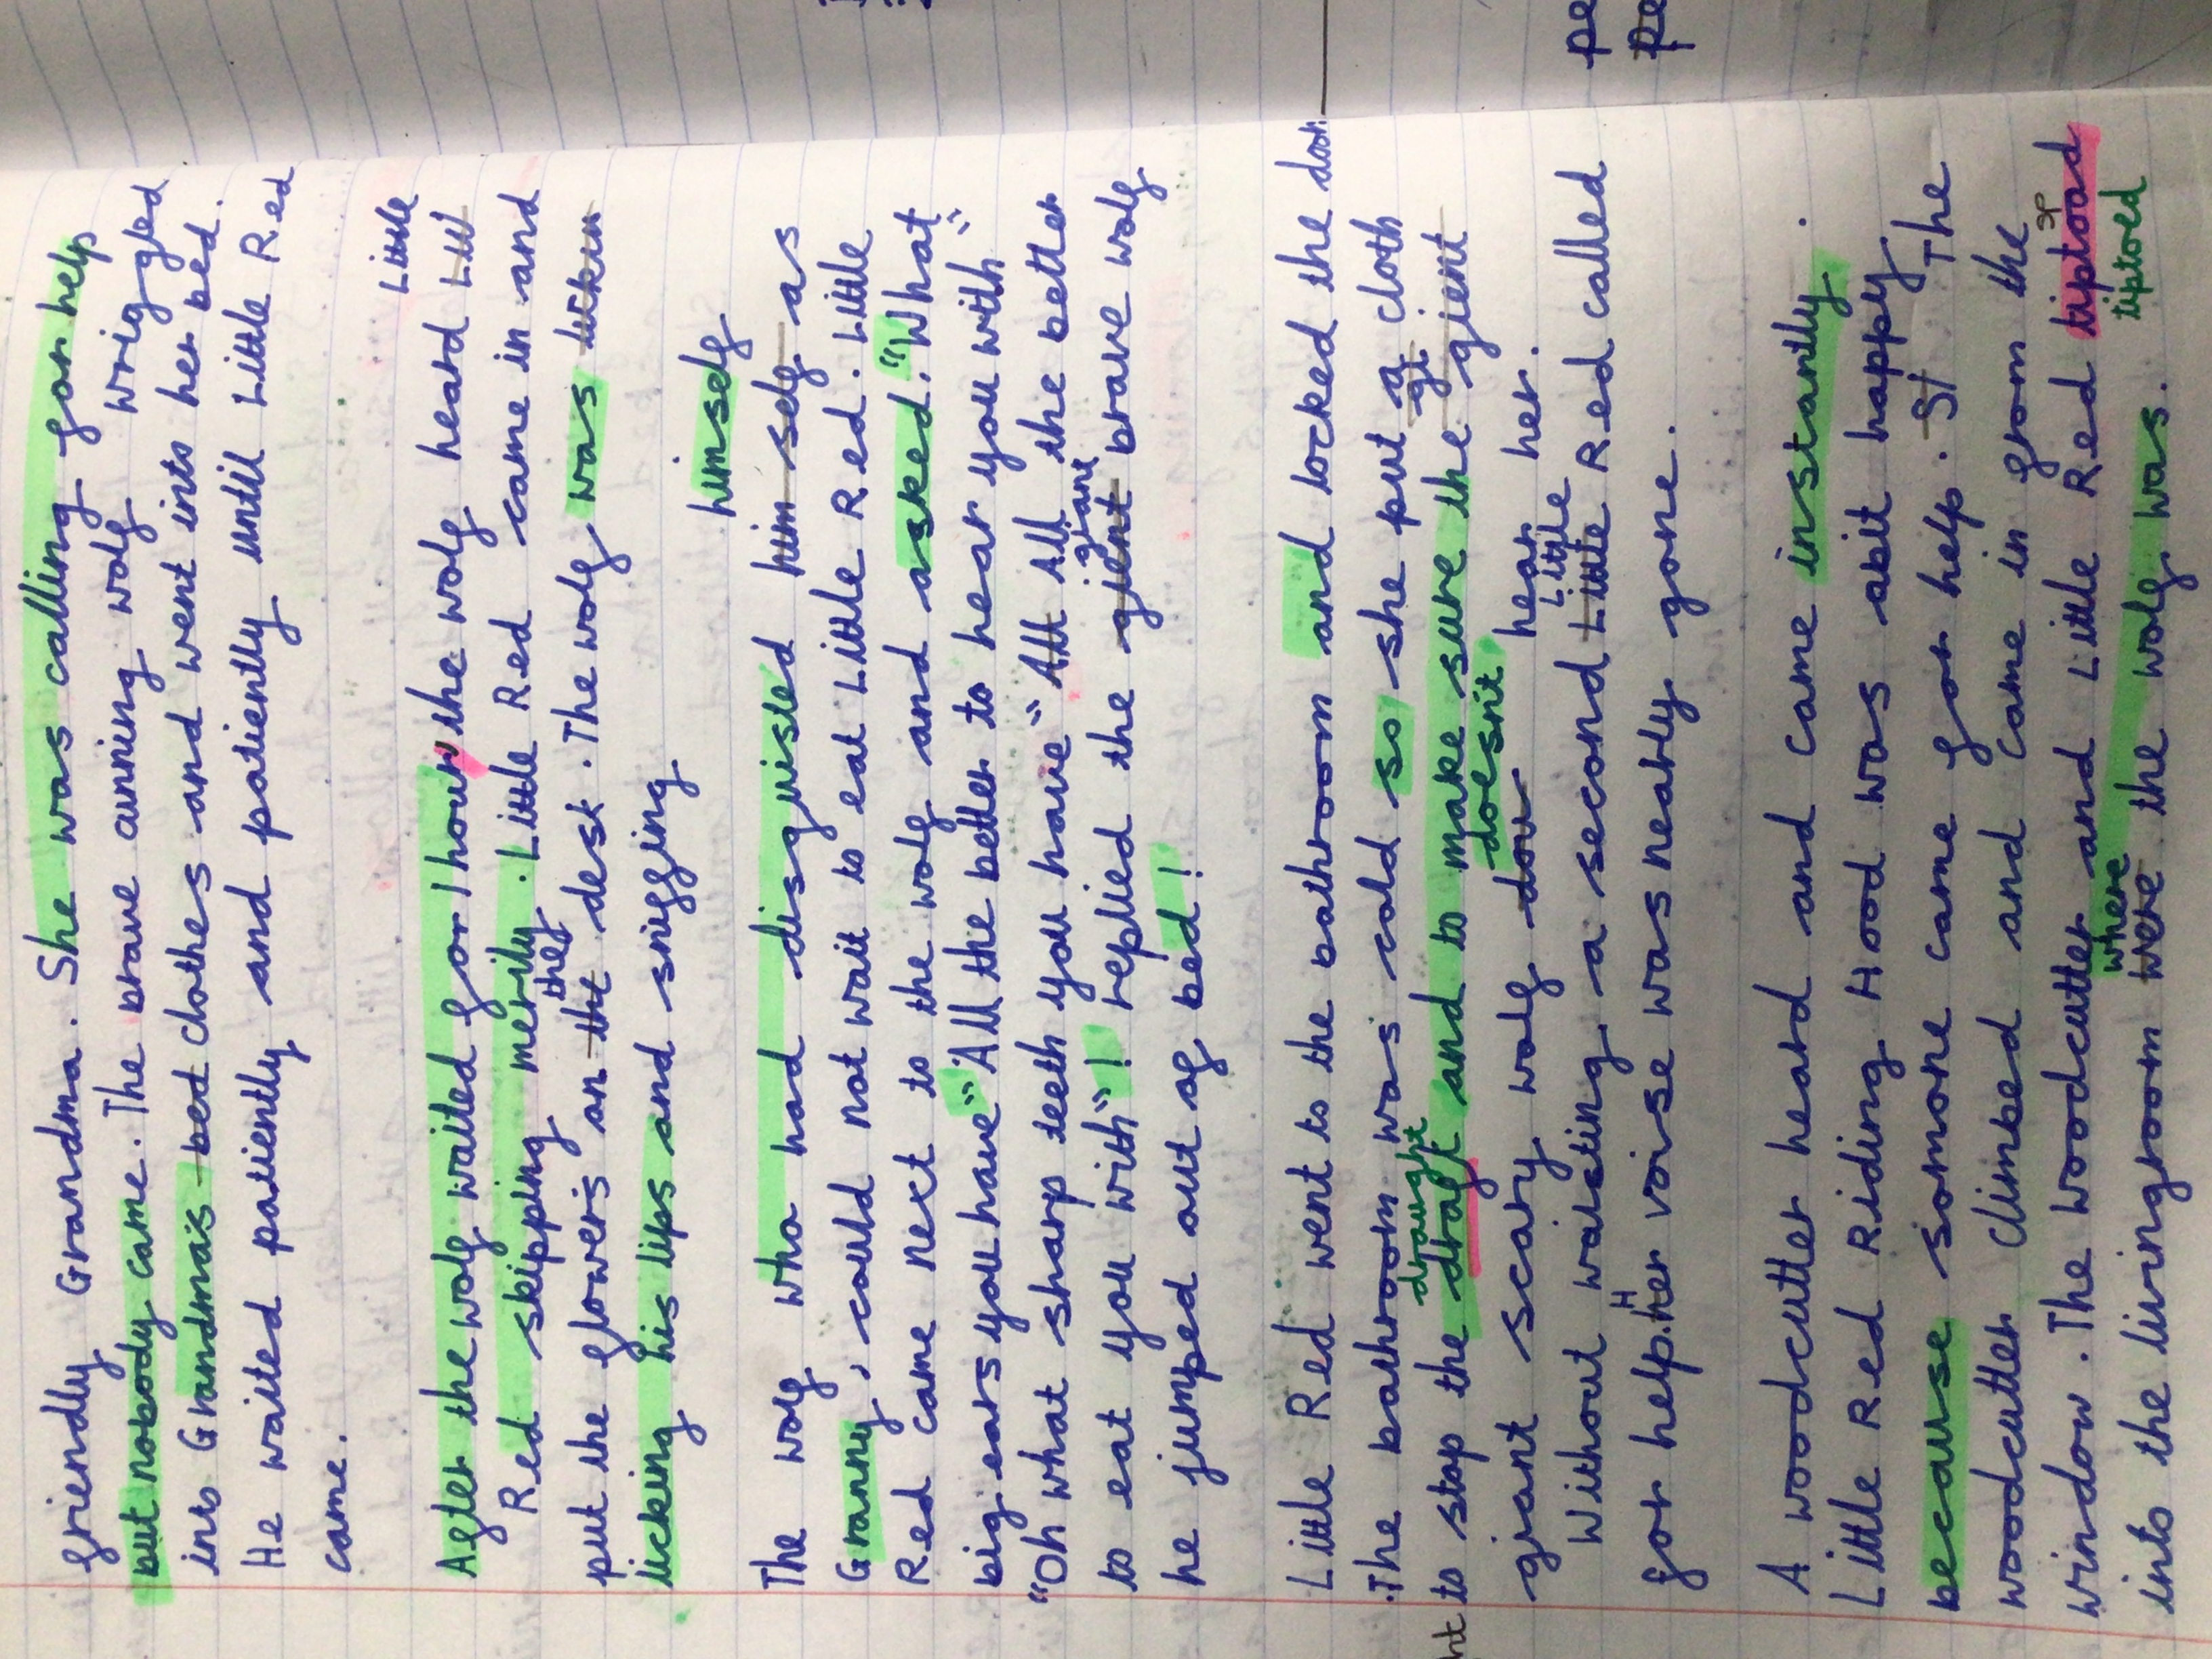 friendly Grandma. She was calling for help
but nobody came. The brave cunning wolf wriggled
into Grandma's bed clothes and went into her bed.
He waited patiently and patiently until Little Red
came.
Little
After the wolf waited for 1 hour, the wolf heard Litt
Red skipping merrily. Little Red came in and
they
put the flowers on the desk. The wolf was
licking his lips and sniffing
himself
The wolf who had disguised him self as
Granny, could not wait to eat Little Red. Little
Red came next to the wolf and asked. "What
big ears you have" "All the better to hear you with"
"Oh what sharp teeth you have" "All All the better
giant
to eat you with"! replied the gient brave wolf
he jumped out of bed!
Little Red went to the bathroom and locked the door
.The bathroom was cold so she put a cloth
draught gi
to stop the draft and to make sure the gient
doesn't hear her.
giant scary wolf dou
Little
Without waisting a second Little Red called
H
for help. her voise was nearly gone.
A woodcutter heard and came instantly.
Little Red Riding Hood was abit happy
because somone came for help. St The
woodcutter climbed and came in from the
sp
window. The woodcutter and Little Red tiptoad
where tiptoed
into the livingroom were the wolf was.
pe
pe